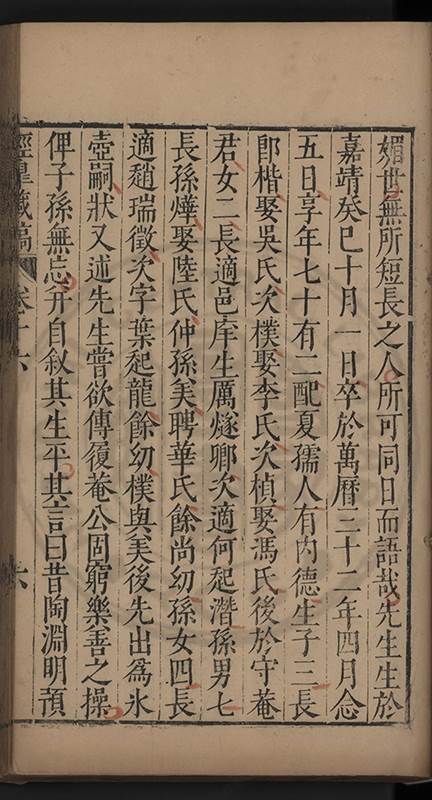 媚世無所短長之人所可同日而語哉先生生於
嘉靖癸巳十月一日卒於萬曆三十二年四月念
五日享年七十有二配夏孺人有內德生子三長
卽楷娶吳氏次樸娶李氏次楨娶馮氏後於守菴
君女二長適邑庠生厲燧卿次適何起潛孫男七
長孫燁娶陸氏仲孫美聘華氏餘尚幼孫女四長
適趙瑞徵次字葉起龍餘幼樸與美後先出爲氷
壺嗣狀又述先生嘗欲傳履菴公固窮樂善之操
俾子孫無忘并自叙其生平其言曰昔陶淵明預
涇皐藏稿 卷十六 六